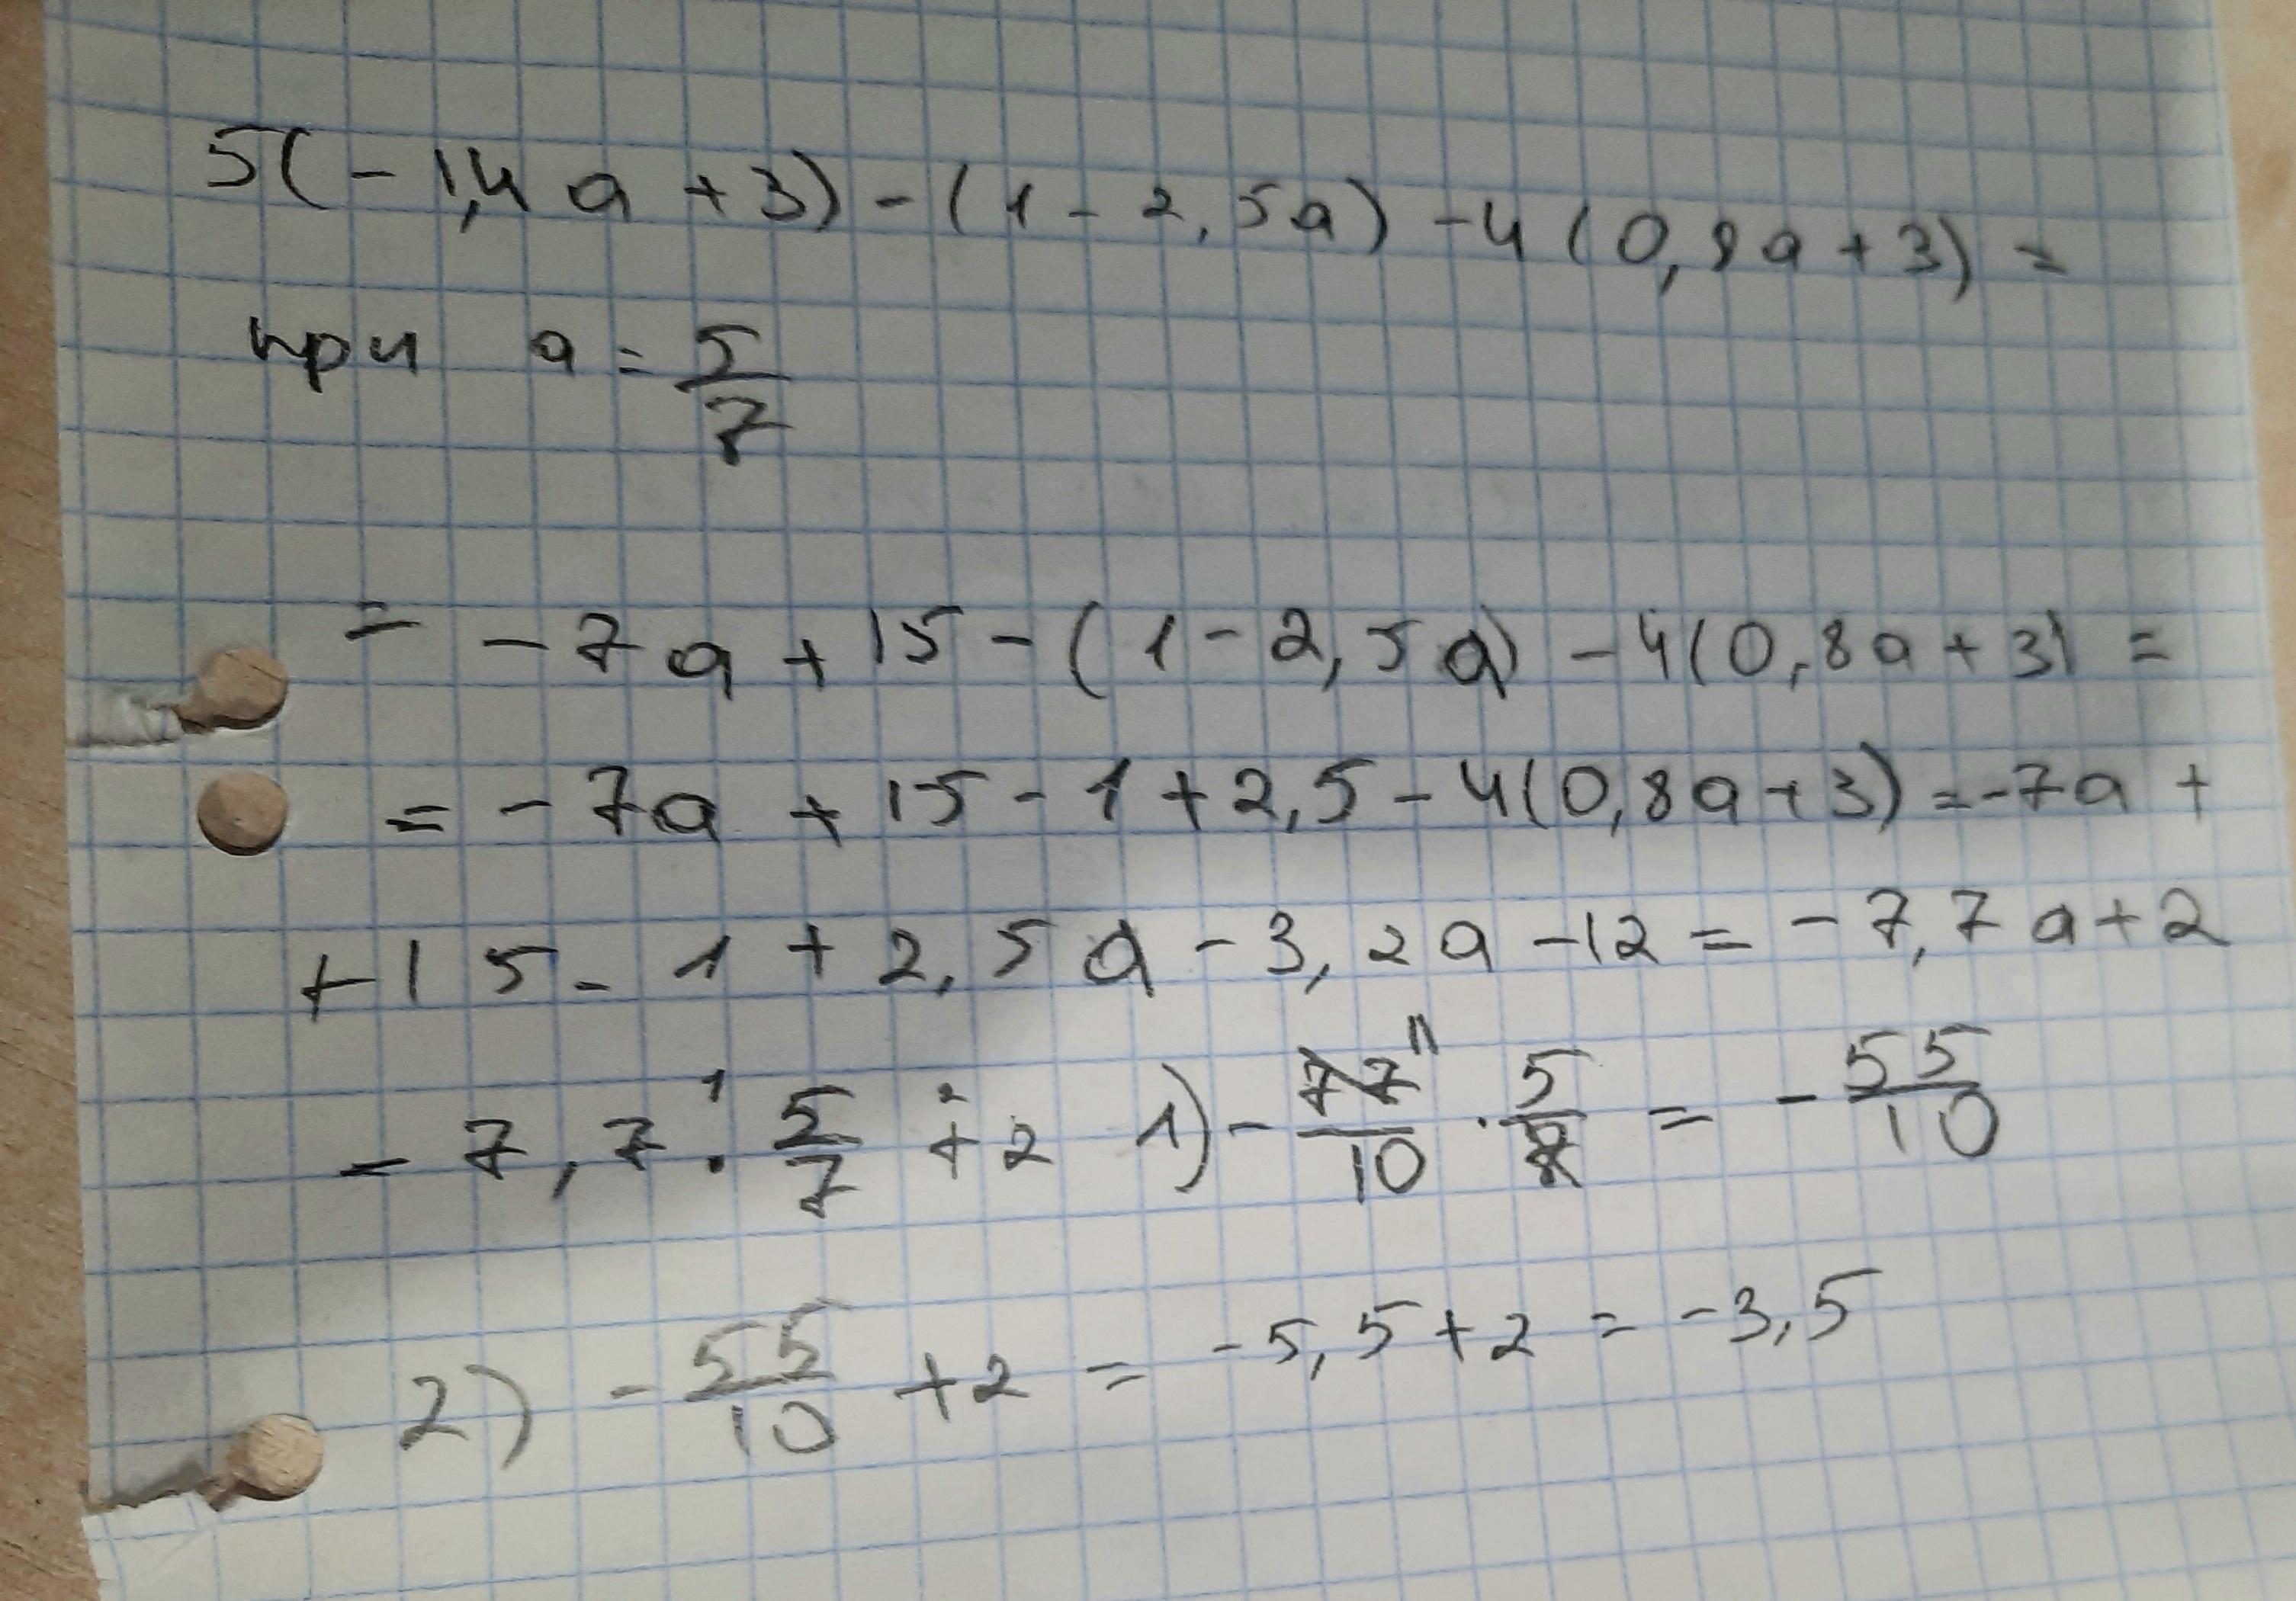 5(-1,4a+3)-(1-2,5a)-4(0,8a+3)=
при a=5/7
=-7a+15-(1-2,5a)-4(0,8a+3)=
=-7a+15-1+2,5-4(0,8a+3)=-7a+
+15-1+2,5a-3,2a-12=-7,7a+2
-7,7 ·¹ 5/7 +² 2 1)-77¹¹/10·5/7=-55/10
2) -55/10+2=-5,5+2=-3,5